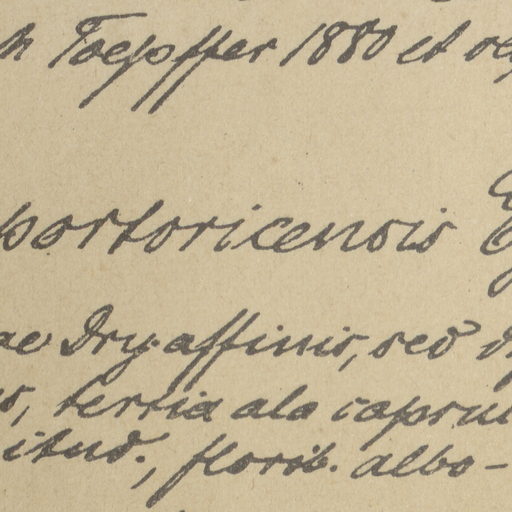 Toepffer 1880 et
portoricensis
ae Dry. affinis, sed
tertia ala capsul
itud., florib. albo-